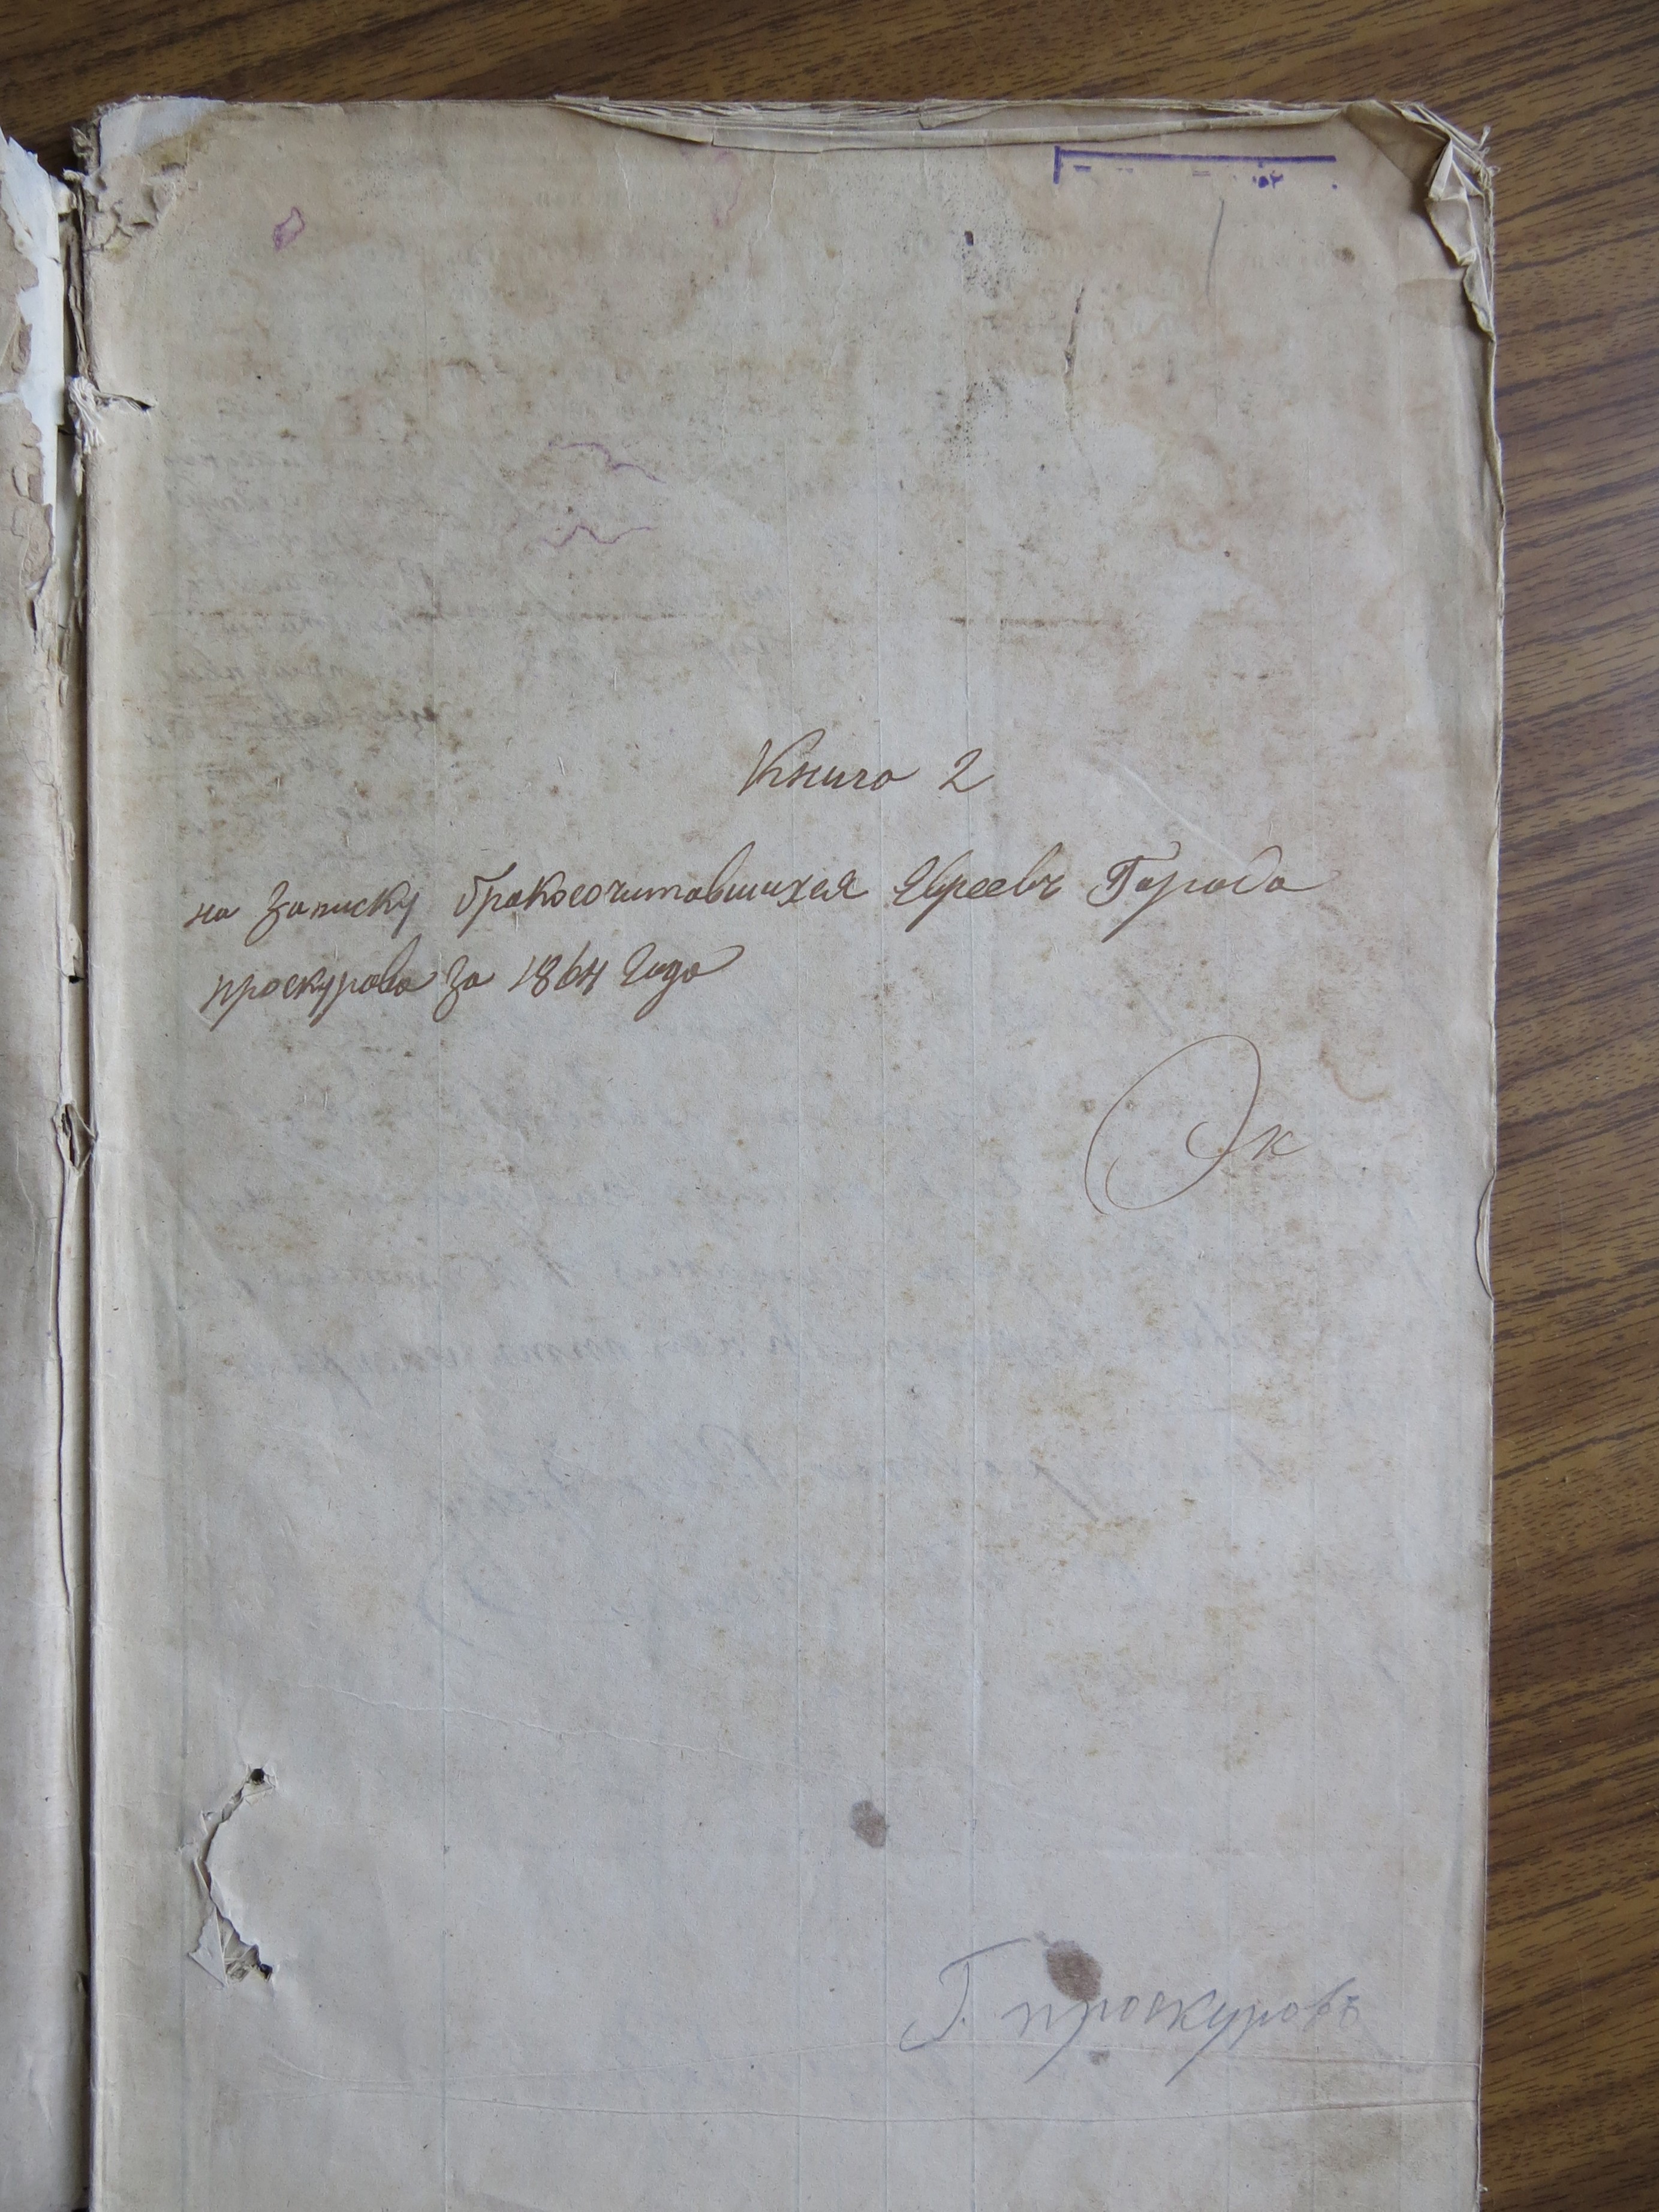 Книга 2
на записку бракосочитавшихся Евреевъ Города
проскурова за 1864 года
Эк
Г. проскуровъ